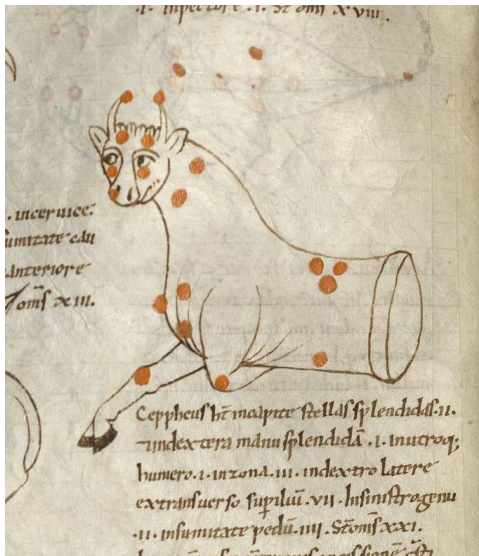 .i. Inpectore .i. St omſ xviii.
. incervice.
ſumitate cau
anteriore
omſ xiii.
Ceppheuſ ht incapite ſtellaſ ſplendidaſ .ii.
indextera manu ſplendidā .i. inutroq;
humero .i. inzona .iii. indextro latere
extranſverſo ſup̄iluū .vii. Inſiniſtro genu
.ii. inſumitate pedū .iiii. St omſ xxi.